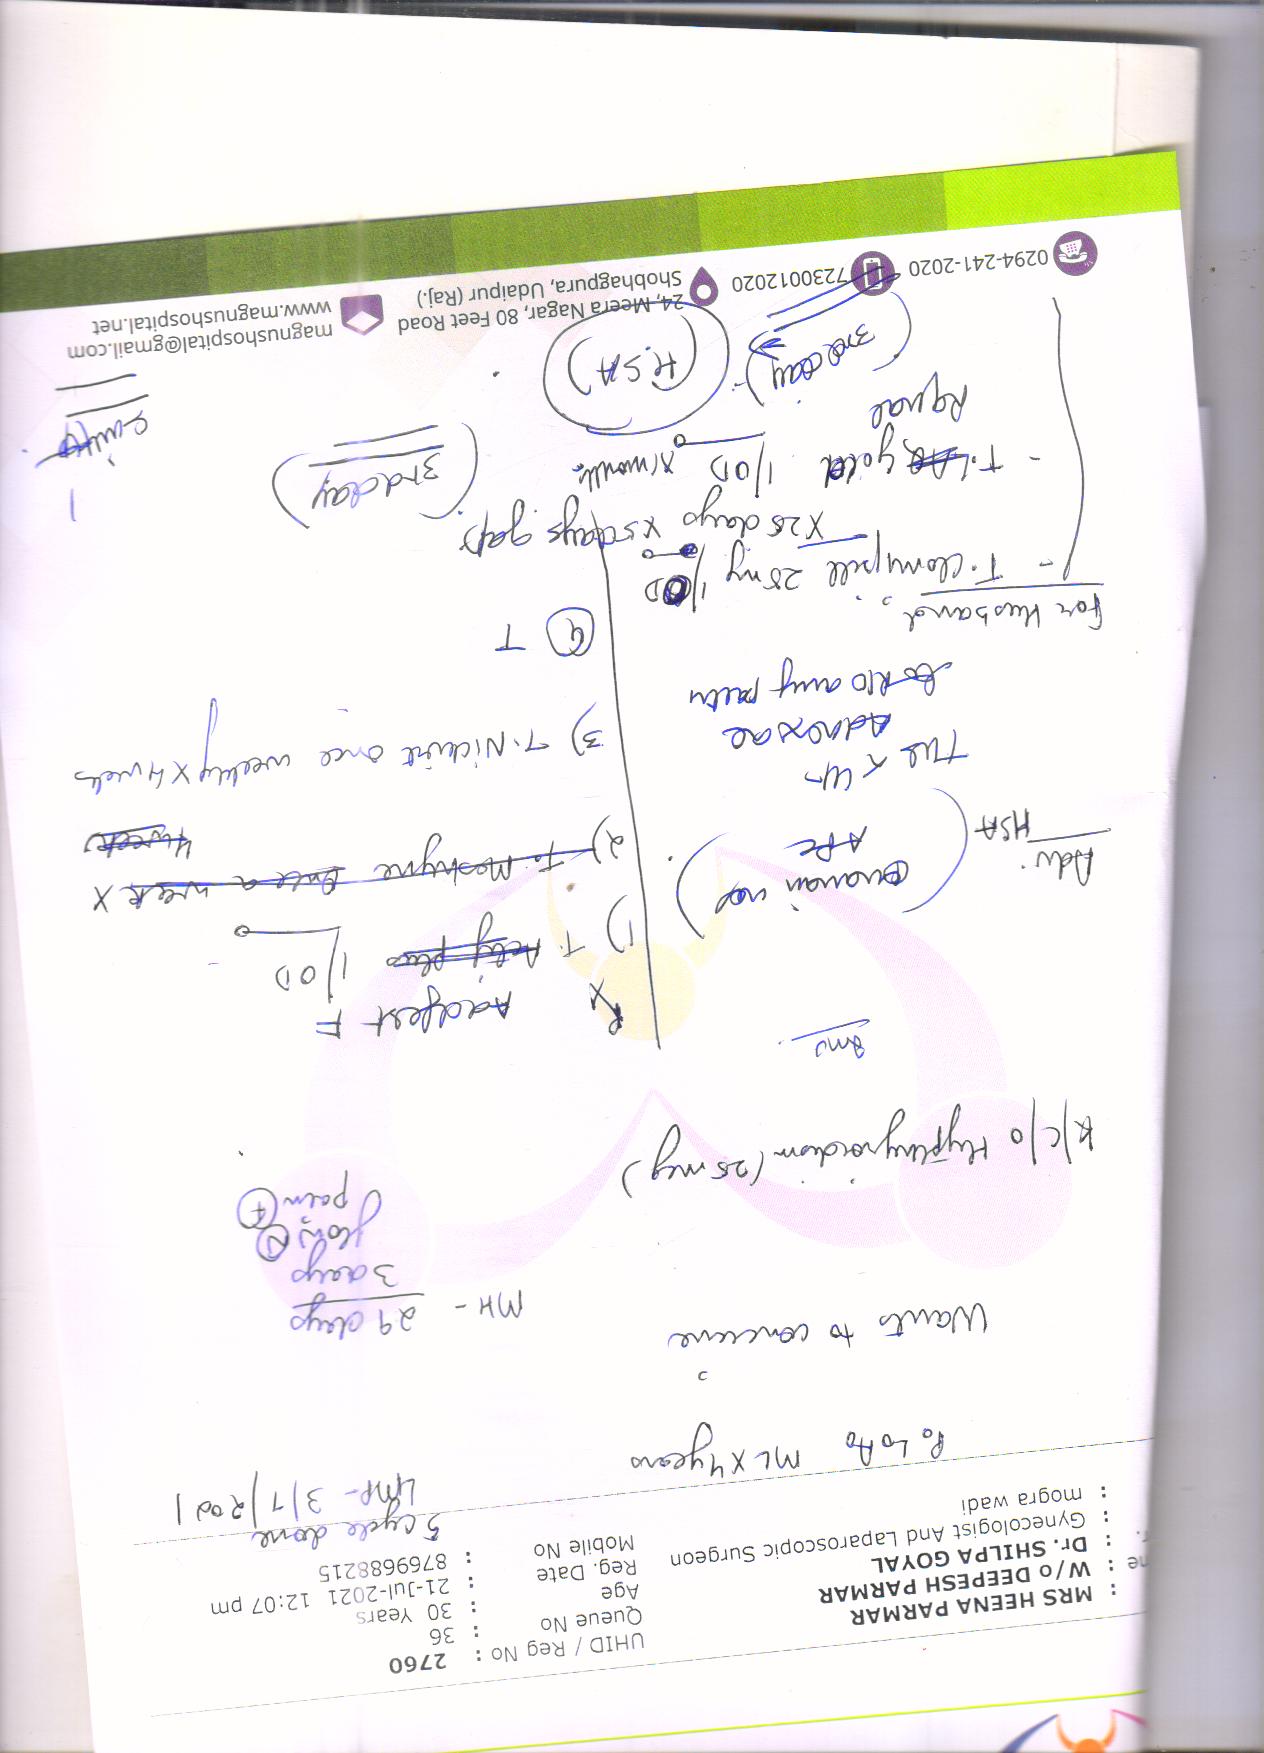 : MRS HEENA PARMAR
: W/o DEEPESH PARMAR
: Dr. SHILPA GOYAL
: Gynecologist And Laparoscopic Surgeon
: mogra wadi
UHID / Reg No : 2760
Queue No : 36
Age : 30 Years
Reg. Date : 21-Jul-2021 12:07 pm
Mobile No : 8769688215
5 cycle done
LMP - 3/7/2021
P0 L0 A0 ML X 4 years
Wants to conceive
MH - 29 days
3 days
flow N
pain +
K/C/O Hypthyroidism (25 mcg)
Adv.
HSA
TVS
Adnexae
R/O any
For Husband
- T. Clomipill 25 mg 1/OD
X 25 days X 5 days gap
- T. gold 1/OD X 1 month
(3rd day)
(H.S.A)
Rx
Addfest F
1) T. Actiplus 1/OD
2) Once a week X
4 weeks
3) T. once weekly X 4 weeks
4) T
(3rd day)
0294-241-2020
7230012020
24, Meera Nagar, 80 Feet Road
Shobhagpura, Udaipur (Raj.)
magnushospital@gmail.com
www.magnushospital.net